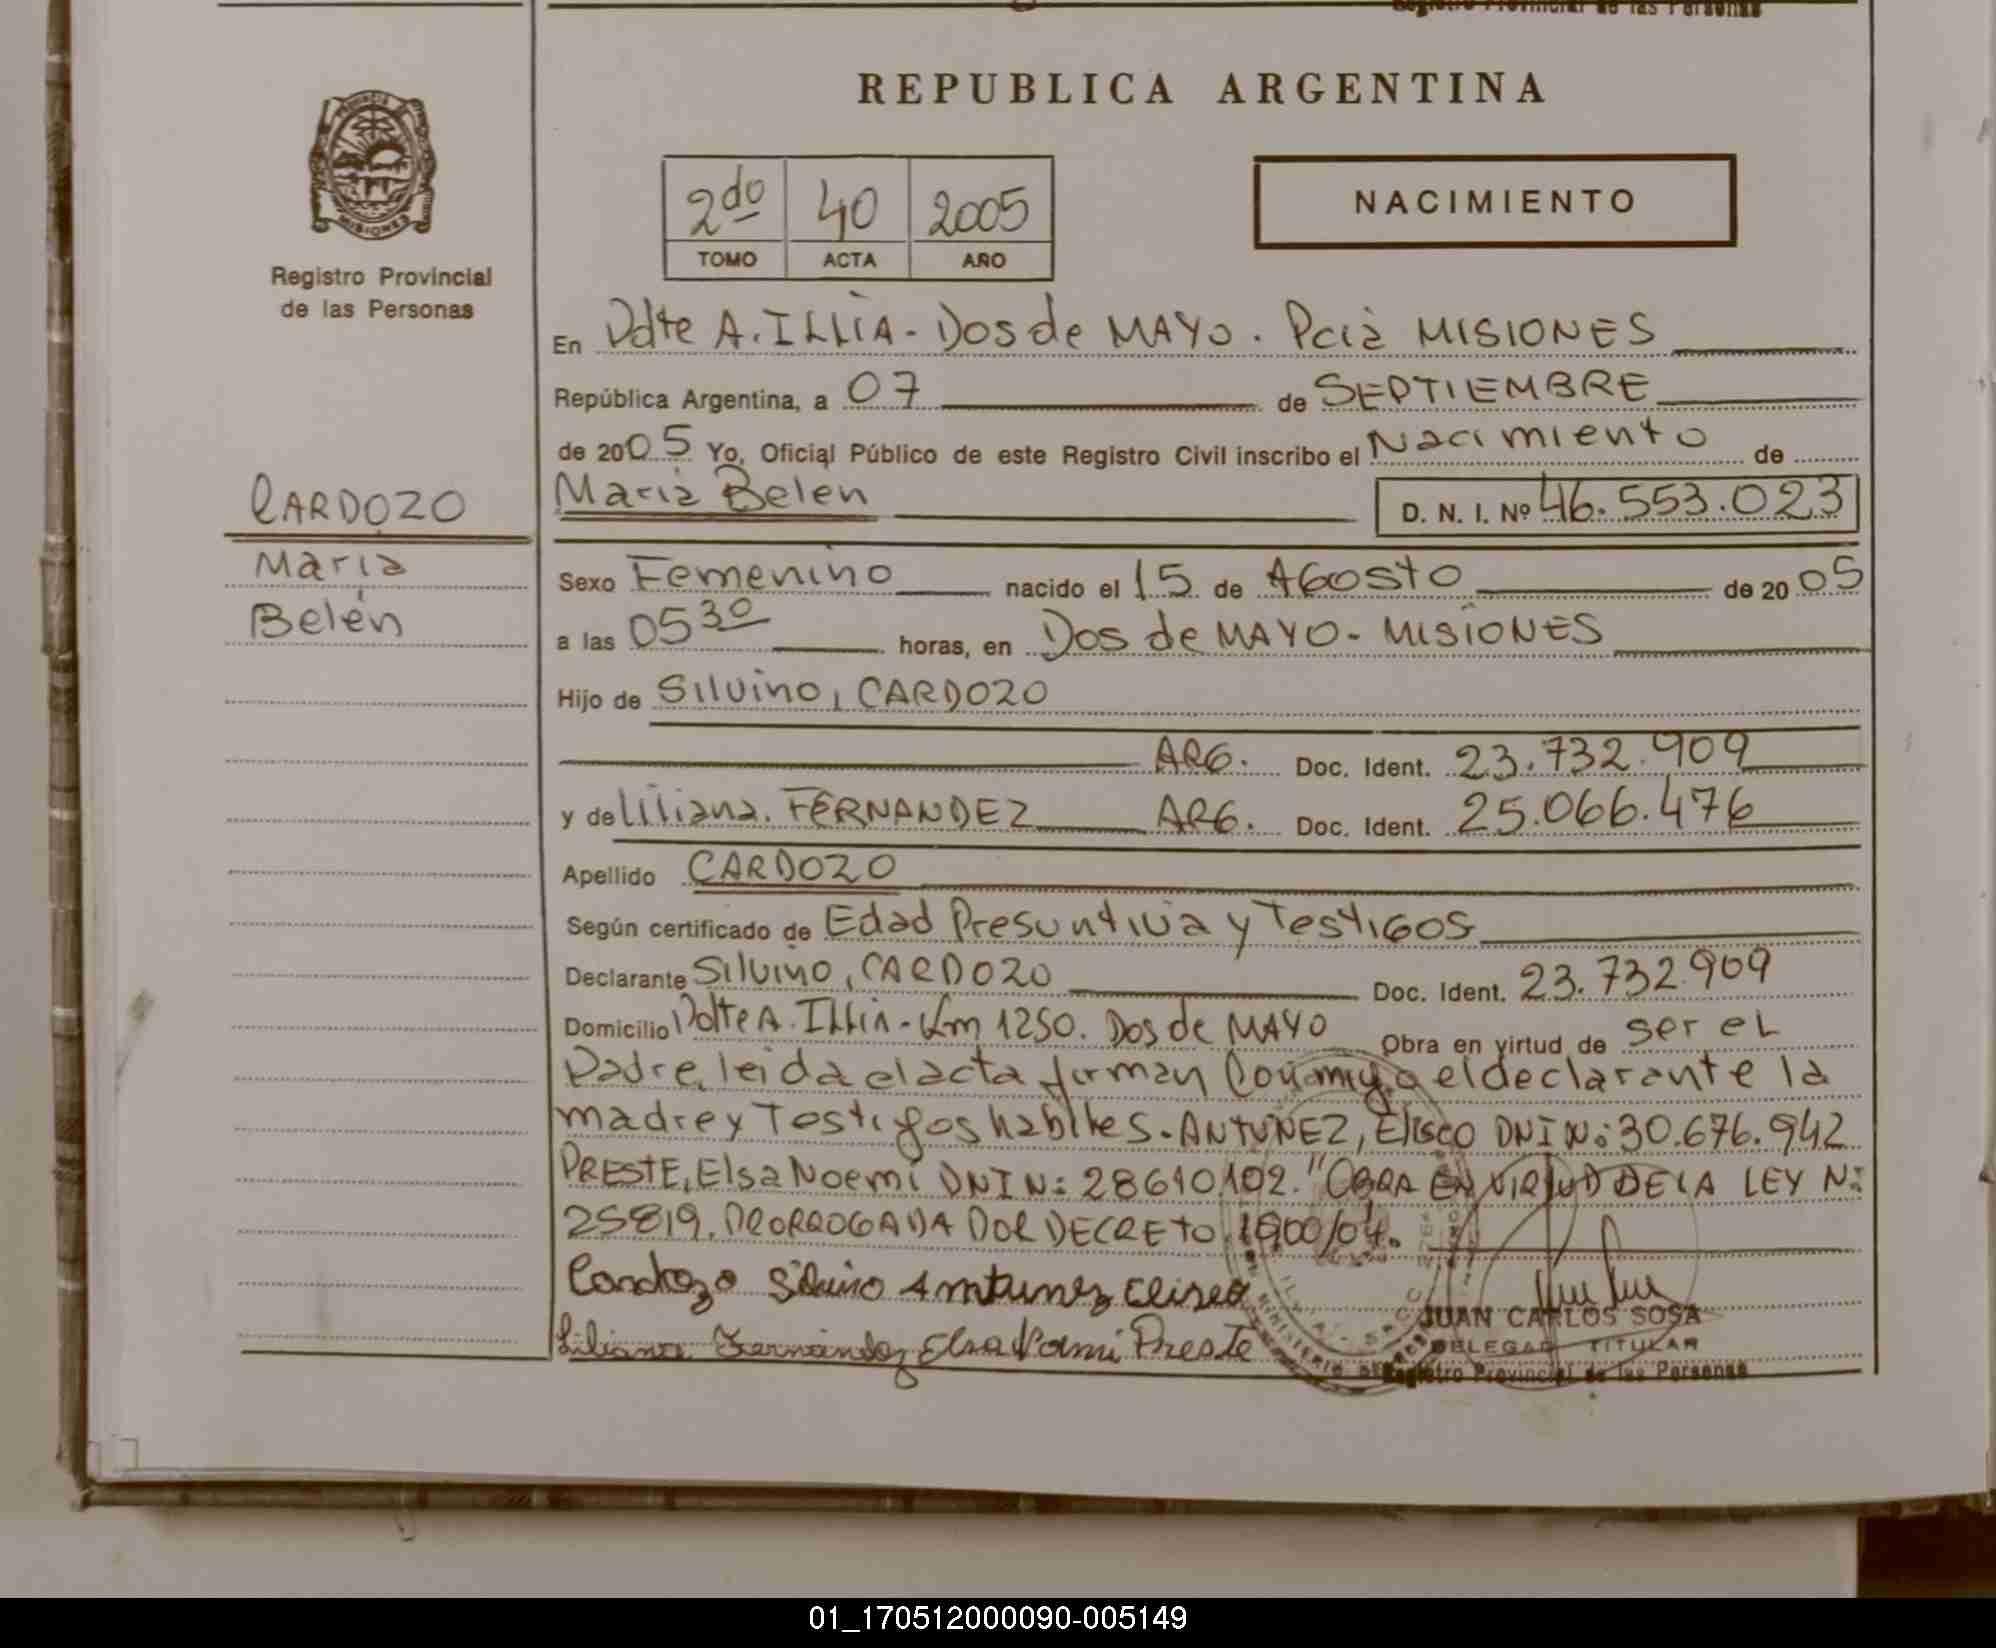 Registro Provincial de las Personas
REPUBLICA ARGENTINA
2do 40 2005
TOMO ACTA AÑO
NACIMIENTO
PROVINCIA
MISIONES
Registro Provincial
de las Personas
En Pdte A. ILLIA - Dos de MAYO. Pcia MISIONES
República Argentina, a 07 de SEPTIEMBRE
de 2005 Yo, Oficial Público de este Registro Civil inscribo el Nacimiento de
CARDOZO
Maria Belen D. N. I. Nº 46.553.023
Maria
Belén
Sexo Femenino nacido el 15 de AGosto de 2005
a las 05 30 horas, en Dos de MAYO - MISIONES
Hijo de Silvino, CARDOZO
ARG. Doc. Ident. 23.732.909
y de Liliana. FERNANDEZ ARG. Doc. Ident. 25.066.476
Apellido CARDOZO
Según certificado de Edad Presuntiva y TestiGOS
Declarante Silvino, CARDOZO Doc. Ident. 23.732.909
Domicilio Pdte A. Illia - Km 1250. Dos de MAYO Obra en virtud de ser el
Padre. leida el acta firman Conmigo el declarante la
madre y Testigos habiles. - ANTUNEZ, Eliseo DNI N: 30.676.942
PRESTE, Elsa Noemi DNI N: 28610102. "OBRA EN VIRTUD DE LA LEY N:
25819. PRORROGADA POR DECRETO 1900/04.
Cardozo Silvino Antunez Eliseo
Liliana Fernández Elsa Noemi Preste
JUAN CARLOS SOSA
DELEGADO TITULAR
Registro Provincial de las Personas
01_170512000090-005149